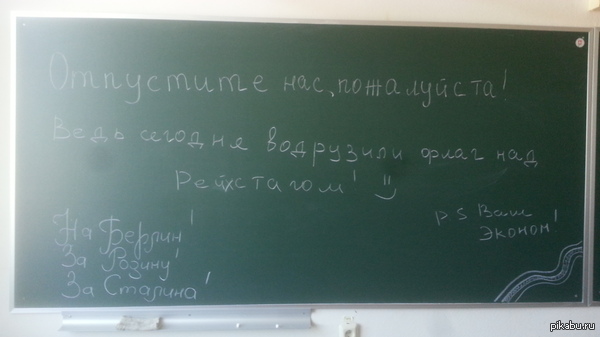 Отпустите нас, пожалуйста!
Ведь сегодня водрузили флаг над
Рейхстагом! =)
На Берлин!
За Родину!
За Сталина!
PS Ваш
Эконом!
pikabu.ru